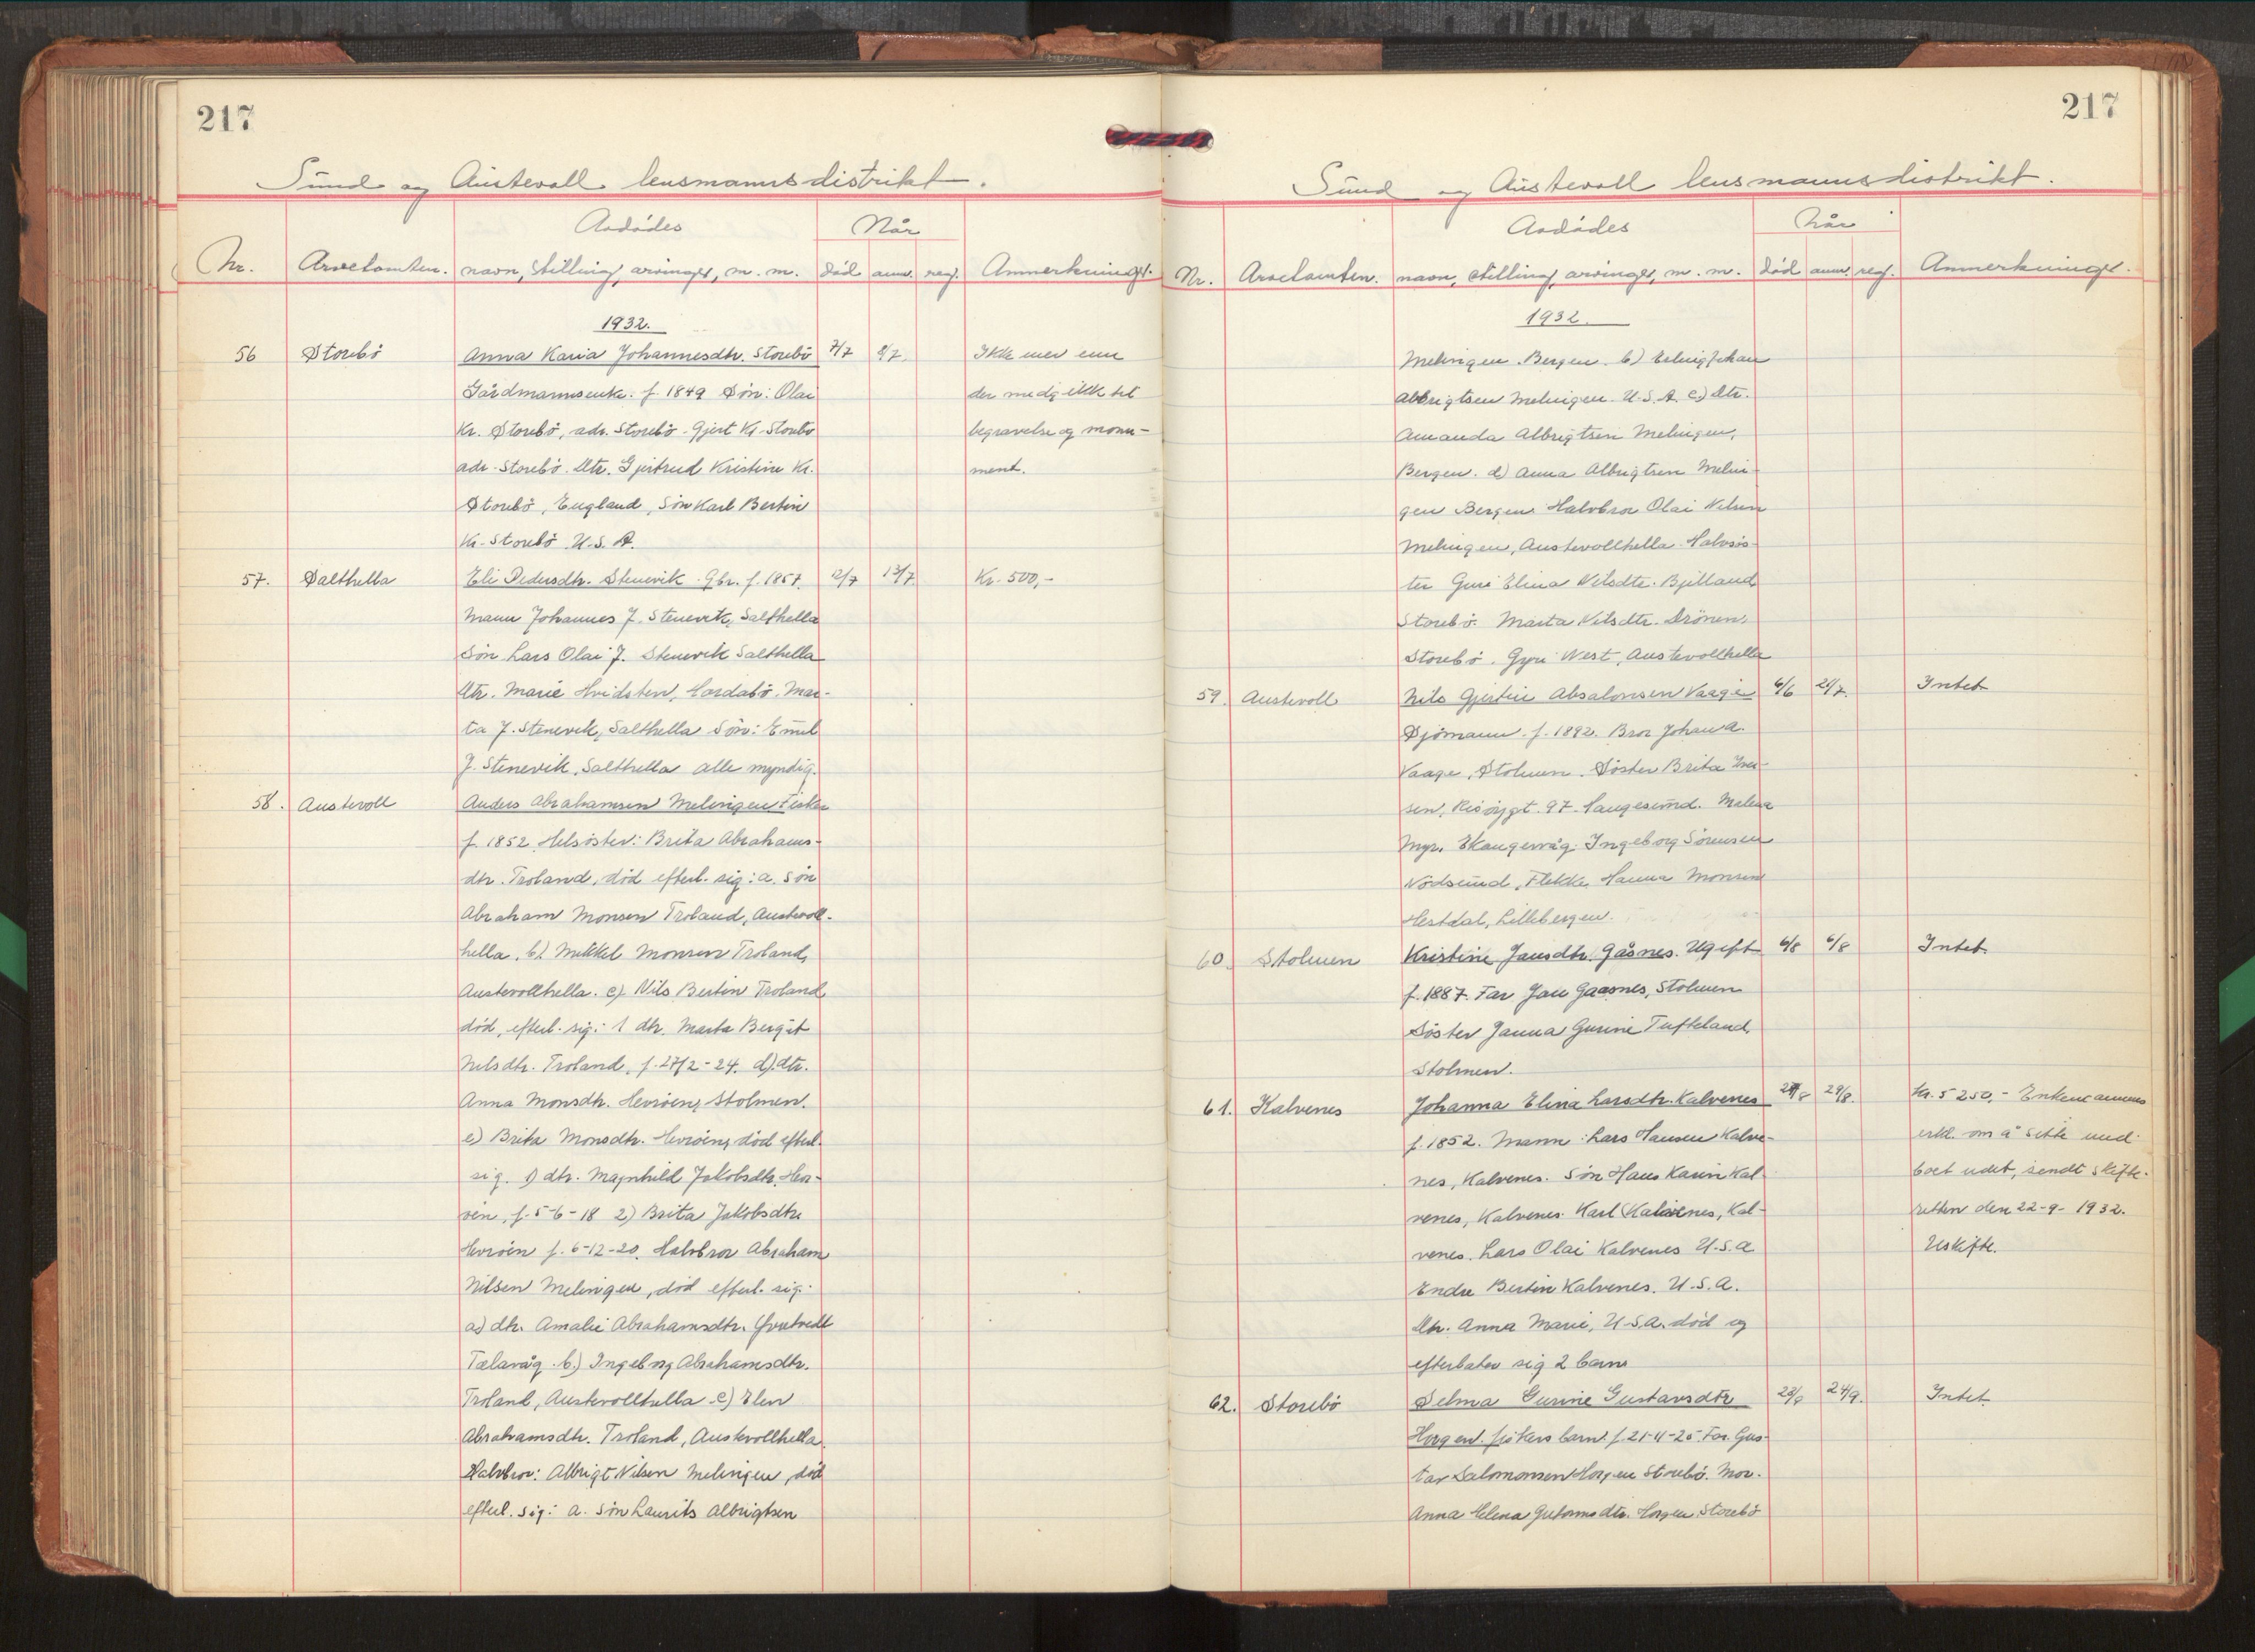 217
Sund og Austevoll lensmannsdistrikt.
Avdødes
Når
Nr. Arvetomten. navn, stilling, arvinger, m. m. død anm. reg. Anmerkninger.
1932.
56 Storebö Anna Karia Johannesdtr. Storebö 7/7 8/7. Ikke mer enn
Gårdmannsenke. f. 1849 Sön: Olai der medg ikk tel
Kr. Storebö, adr. Storebö. Gjert Kr. Storebö begravelse og monu-
adr. Storebö. Dtr. Gjertrud Kristine Kr. ment.
Storebö, England, Sön Karl Bertin
Kr. Storebö U.S.A.
57. Salthella Eli Pedersdtr. Stenevik. Gbr. f. 1857. 12/7 13/7 Kr. 500,-
Mann Johannes J. Stenevik, Salthella
Sön Lars Olai J. Stenevik Salthella
Dtr. Marie Hvidsten, Hardabö. Mar-
ta J. Stenevik, Salthella Sön: Emil
J. Stenevik, Salthella alle myndig.
58. Austevoll Anders Abrahamsen Melingen Fisker
f. 1852. Helsöster: Brita Abrahams-
dtr. Troland, död efterl. sig: a. sön
Abraham Monsen Troland, Austevoll-
hella. b) Mikkel Monsen Troland,
Austevollhella. c) Nils Bertin Troland
död, efterl. sig: 1 dtr. Marta Bergit
Nilsdtr. Troland, f. 27/2-24. d) dtr.
Anna Monsdtr. Hevröen, Stolmen.
e) Brita Monsdtr. Hevröen, död efterl.
sig. 1) dtr. Magnhild Jakobsdtr. Hev-
röen, f. 5-6-18 2) Brita Jakobsdtr.
Hevröen f. 6-12-20. Halvbror Abraham
Nilsen Melingen, död efterl. sig:
a) dtr. Amalie Abrahamsdtr.
Telavåg. b.) Ingeborg Abrahamsdtr.
Troland, Austevollhella c) Elen
Abrahamsdtr. Troland, Austevollhella.
Halvbror: Albrigt Nilsen Melingen, död
efterl. sig: a. sön Laurits Albrigtsen
217
Sund og Austevoll lensmannsdistrikt.
Avdødes
Når
Nr. Arvetomten. navn, stilling, arvinger, m. m. død anm. reg. Anmerkninger.
1932.
Melingen. Bergen. b) Johan
Albrigtsen Melingen. U.S.A. c) Dtr.
Amanda Albrigtsen Melingen,
Bergen. d) Anna Albrigtsen Melin-
gen Bergen. Halvbror Olai Nilsen
Melingen, Austevollhella. Halvsös-
ter Guri Elina Nilsdtr. Bjelland
Storebö. Marta Nilsdtr. Drönen,
Storebö. Gyri West, Austevollhella
59. Austevoll Nils Gjertin Absalonsen Vaage 6/6 21/7. Intet
Sjömann. f. 1892. Bror Johan A.
Vaage, Stolmen. Söster Brita Iver-
sen, Risöygt. 97. Haugesund. Malena
Myr. Ekangervåg. Ingeborg Sörensen
Nordsund, Flekke, Hanna Monsen
Hestdal, Lillebergen.
60. Stolmen Kristine Jansdtr. Gåsnes. Ugift 4/8 6/8 Intet.
f. 1887. Far Jan Gaasnes, Stolmen
Söster Janna Gurine Tufteland.
Stolmen.
61. Kalvenes Johanna Elina Larsdtr. Kalvenes 29/8. Kr. 5250,- Enkemannens
f. 1852. Mann: Lars Hansen Kalve- erkl. om å sitte med
nes, Kalvenes. Sön Hans Karin Kal- boet udelt, sendt skifte-
venes, Kalvenes. Karl Kalvenes, Kal- retten den 22-9-1932.
venes. Lars Olai Kalvenes U.S.A Uskifte.
Endre Bertin Kalvenes. U.S.A.
Dtr. Anna Marie, U.S.A. död og
efterlater sig 2 barn
62. Storebö Selma Gurine Gustavsdtr. 24/9. Intet.
Horgen. fiskers barn. f. 21-4-25. Far. Gus-
tav Salomonsen Horgen Storebö. Mor.
Anna Elena Guttormsdtr. Horgen. Storebö